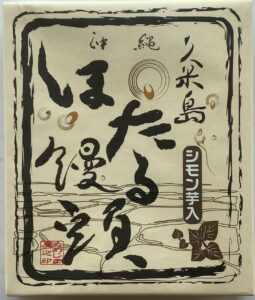 沖縄
久米島
ほたる
饅頭
シモン芋入